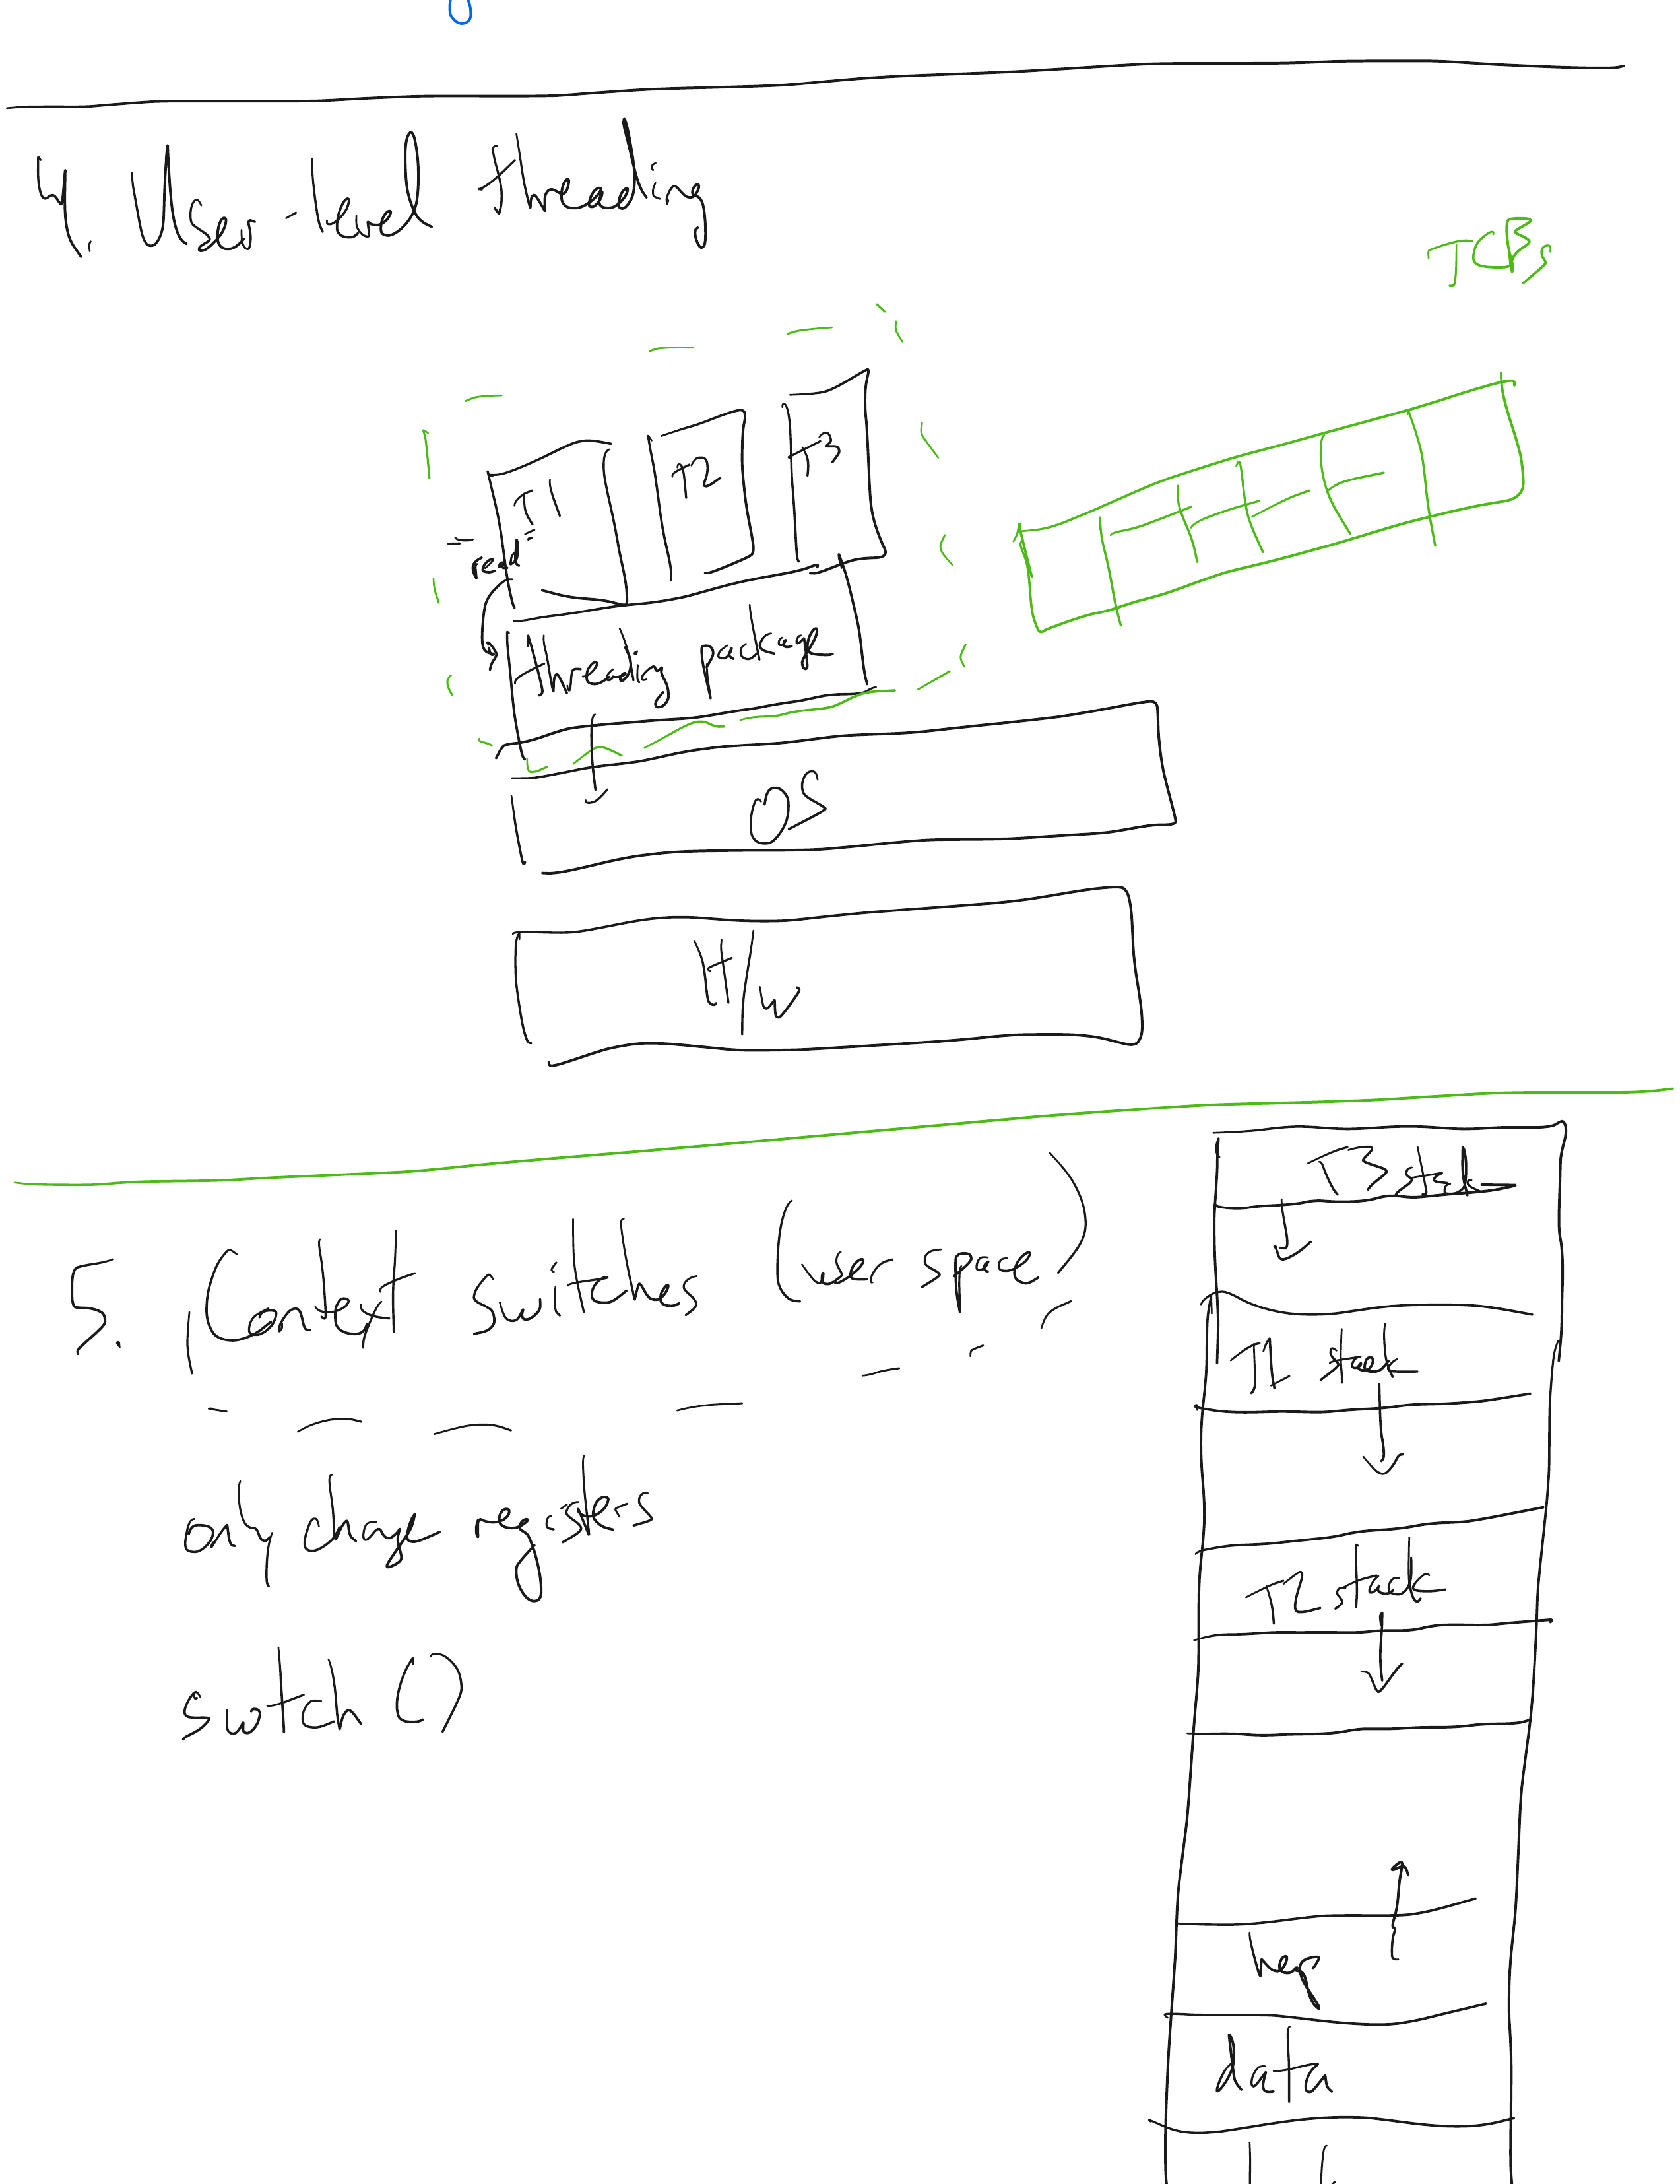 4. User-level threading
TCBs
T1
T2
T3
read
threading package
OS
H/W
5. Context switches (user space)
only change registers
swtch()
T3 stack
T1 stack
T2 stack
heap
data